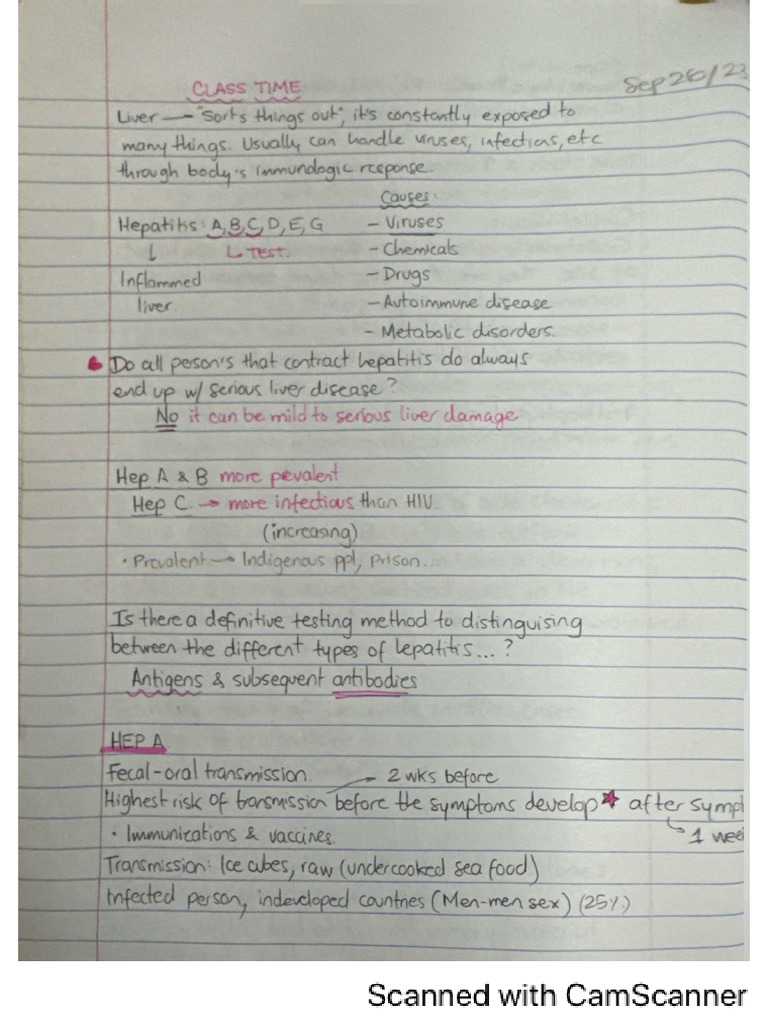 Sep 26/23
CLASS TIME
Liver — "Sorts things out", it's constantly exposed to
many things. Usually can handle viruses, infections, etc
through body's immunologic response.
Causes:
Hepatitis: A, B, C, D, E, G – Viruses
↓ ↳ TEST. – Chemicals
Inflammed – Drugs
liver. – Autoimmune disease
– Metabolic disorders.
Do all person's that contract hepatitis do always
end up w/ serious liver disease?
No it can be mild to serious liver damage
Hep A & B more prevalent
Hep C → more infectious than HIV
(increasing)
• Prevalent → Indigenous ppl, prison...
Is there a definitive testing method to distinguising
between the different types of hepatitis...?
Antigens & subsequent antibodies
HEP A
Fecal-oral transmission. 2 wks before
Highest risk of transmission before the symptoms develop★ after sympt
• Immunizations & vaccines. ↳ 1 wee
Transmission: Ice cubes, raw (undercooked sea food)
Infected person, indeveloped countries (Men-men sex) (25%)
Scanned with CamScanner